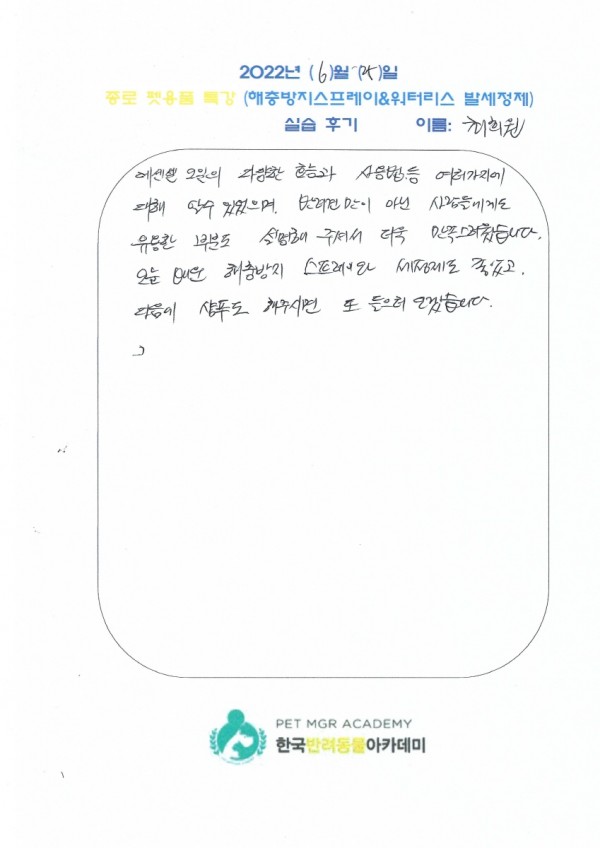 2022년 (6)월 (25)일
종로 펫용품 특강 (해충방지스프레이&워터리스 발세정제)
실습 후기 이름: 최희원
에센셜 오일의 다양한 효능과 사용법 등 여러가지에
대해 알수 있었으며, 반려견만이 아닌 사람들에게도
유용한 부분도 설명해 주셔서 더욱 만족스러웠습니다.
오늘 배운 해충방지 스프레이와 세정제도 좋았고,
다음에 샴푸도 해주시면 또 들으러 오겠습니다.
PET MGR ACADEMY
한국반려동물아카데미